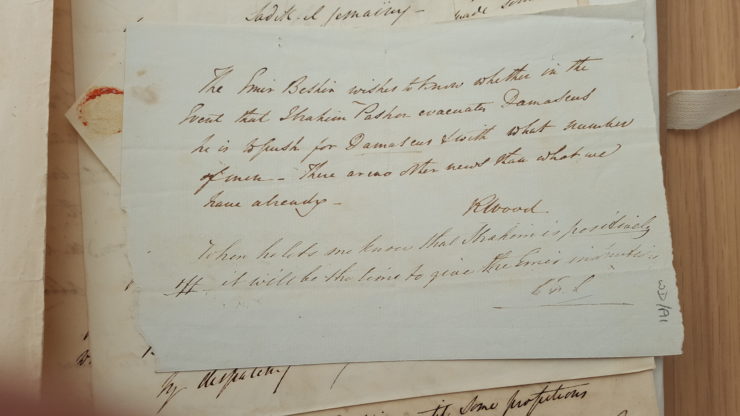 made som
The Emir Beshir wishes to know whether in the
Event that Ibrahim Pasha evacuates Damascus
he is to push for Damascus & with what number
of men – There are no other news than what we
have already –
RWood
When he lets me know that Ibrahim is positively
off it will be the time to give the Emir
WD/A1
by
some